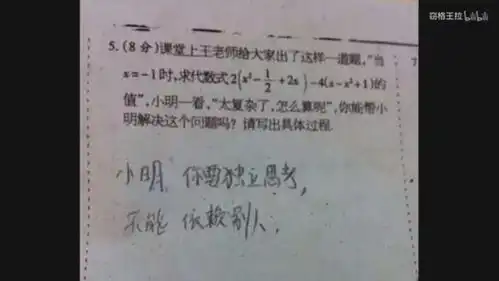 窃格王拉 bilibili
5.(8分)课堂上王老师给大家出了这样一道题,"当
x=-1时,求代数式2(x²-1/2+2x)-4(x-x²+1)的
值",小明一看,"太复杂了,怎么算呢",你能帮小
明解决这个问题吗?请写出具体过程.
7
小明,你要独立思考,
不能依赖别人.